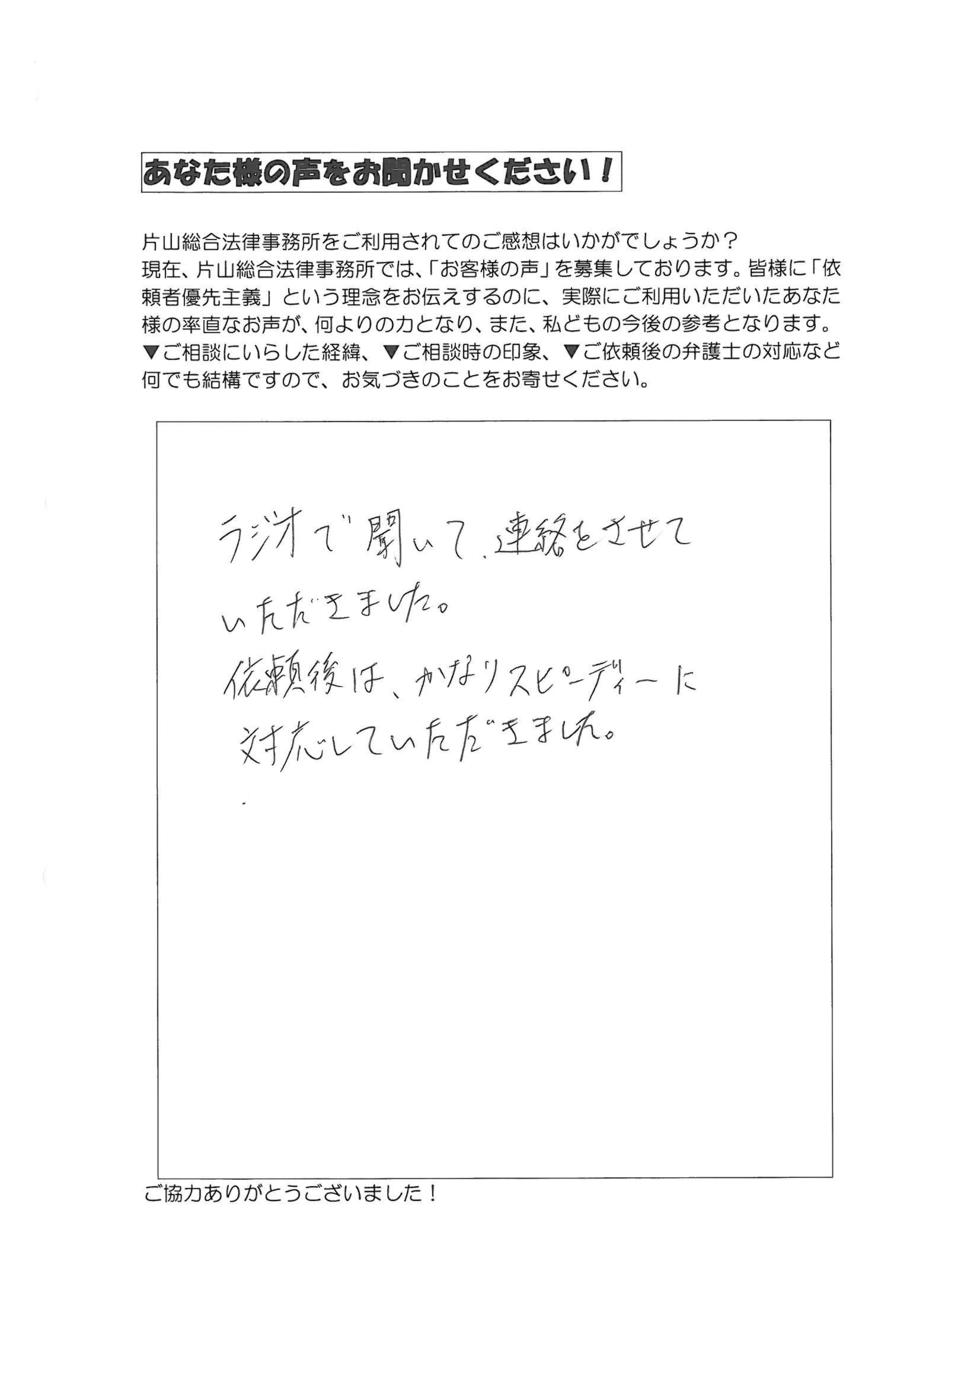 あなた様の声をお聞かせください！
片山総合法律事務所をご利用されてのご感想はいかがでしょうか？
現在、片山総合法律事務所では、「お客様の声」を募集しております。皆様に「依
頼者優先主義」という理念をお伝えするのに、実際にご利用いただいたあなた
様の率直なお声が、何よりの力となり、また、私どもの今後の参考となります。
▼ご相談にいらした経緯、▼ご相談時の印象、▼ご依頼後の弁護士の対応など
何でも結構ですので、お気づきのことをお寄せください。
ラジオで聞いて、連絡をさせて
いただきました。
依頼後は、かなりスピーディーに
対応していただきました。
ご協力ありがとうございました！